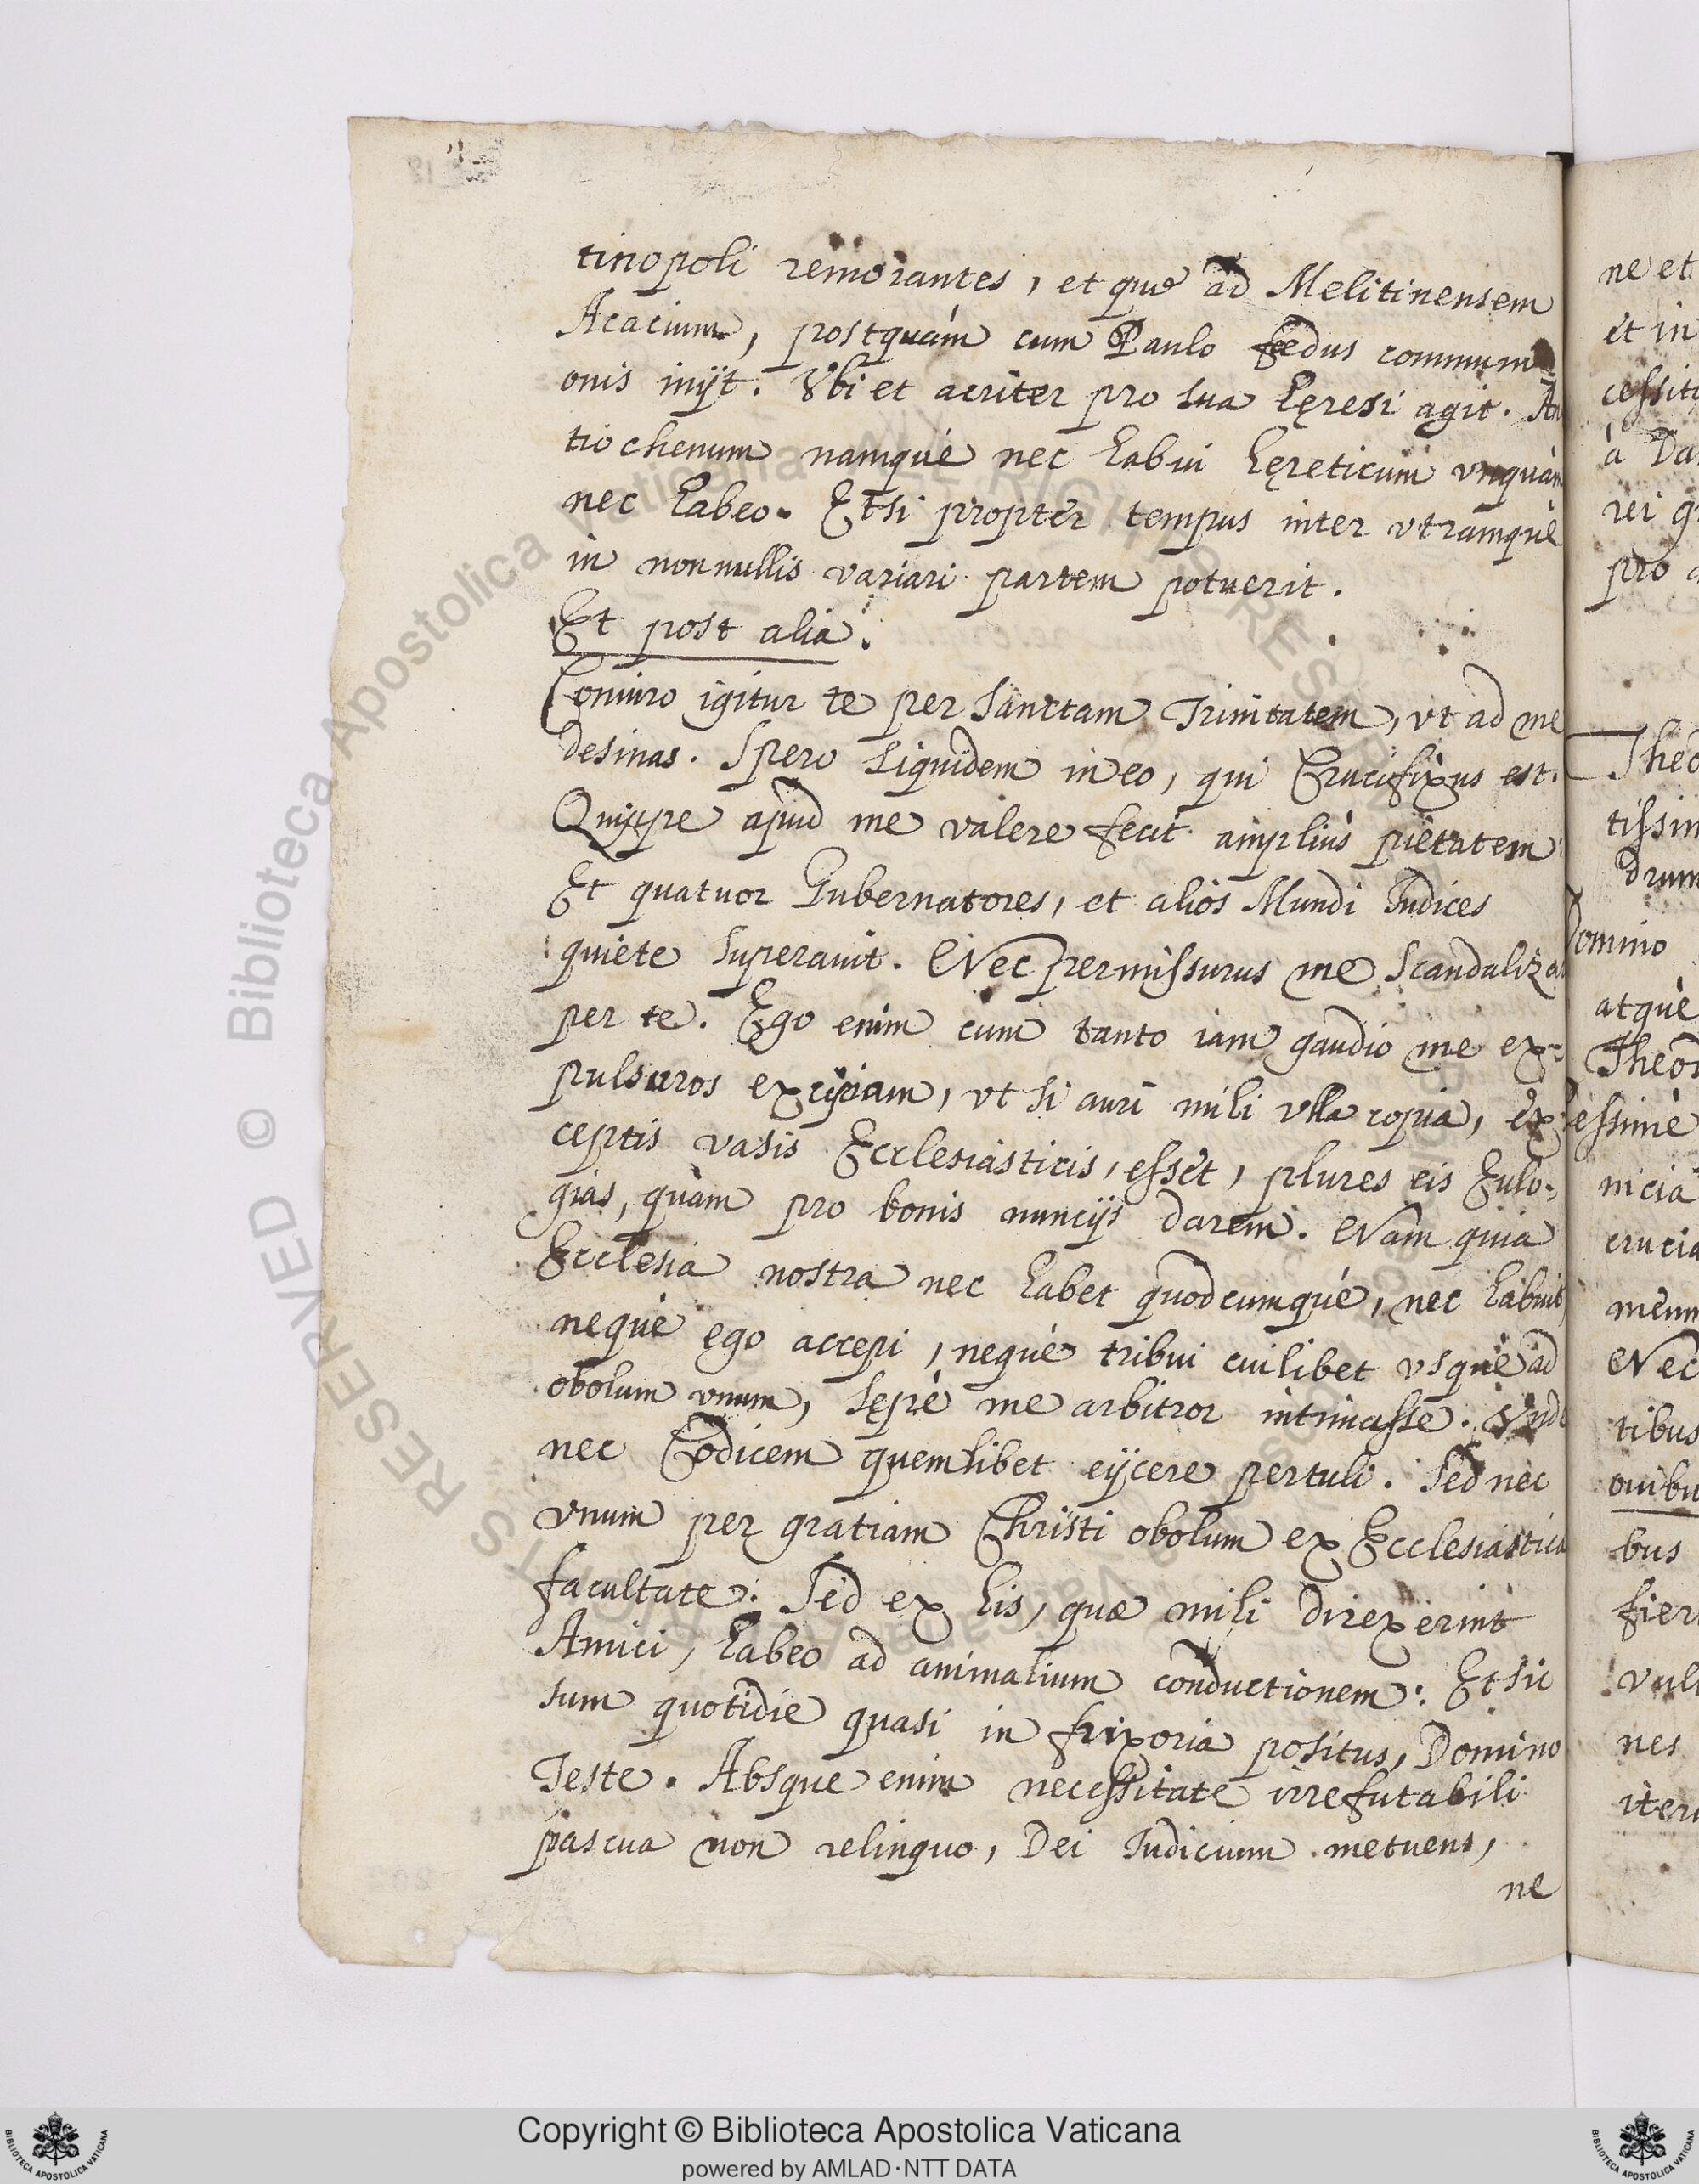 tinopoli remorantes, et que ad Melitinensem
Acacium, postquàm cum Paulo fedus communi=
onis inijt. Vbi et acriter pro sua hęresi agit. An
tiochenum namque nec habui hęreticum vnquàm
nec habeo. Etsi propter tempus inter vtramque
in nonnullis variari partem potuerit.
Et post alia.
Coniuro igitur te per Sanctam Trinitatem, vt ad me
desinas. Spero siquidem in eo, qui Crucifixus est.
Quippe apud me valere fecit amplius pietatem
Et quatuor Gubernatores, et alios Mundi Iudices
quiete superauit. Nec permissurus me scandaliza
per te. Ego enim cum tanto iam gaudio me ex=
pulsuros excipiam, vt si auri mihi vlla copia, ex
ceptis vasis Ecclesiasticis, esset, plures eis Eulo=
gias, quàm pro bonis nuncijs darem. Nam quia
Ecclesia nostra nec habet quodcumque, nec habuit
neque ego accepi, neque tribui cuilibet vsque ad
obolum vnum, sępè me arbitror intimasse. Vnde
nec Codicem quemlibet eijcere pertuli. Sed nec
vnum per gratiam Christi obolum ex Ecclesiastica
facultate. Sed ex his, quæ mihi direxerint
Amici, habeo ad animalium conductionem: Et sic
sum quotidie quasi in frixoria positus, Domino
Teste. Absque enim necessitate irrefutabili
pascua non relinquo, Dei Iudicium metuens,
ne
ne et
et in
cessit
à Da
rei q
pro
Theo
tissim
drum
Domino
atque
Theo
essime
nicia
crucia
meum
Nec
tibus
ouibu
bus
fier
vul
nes
iteru
© Biblioteca Apostolica Vaticana ALL RIGHTS RESERVED
Copyright © Biblioteca Apostolica Vaticana
powered by AMLAD·NTT DATA
BIBLIOTECA APOSTOLICA VATICANA
BIBLIOTECA APOSTOLICA VATICANA